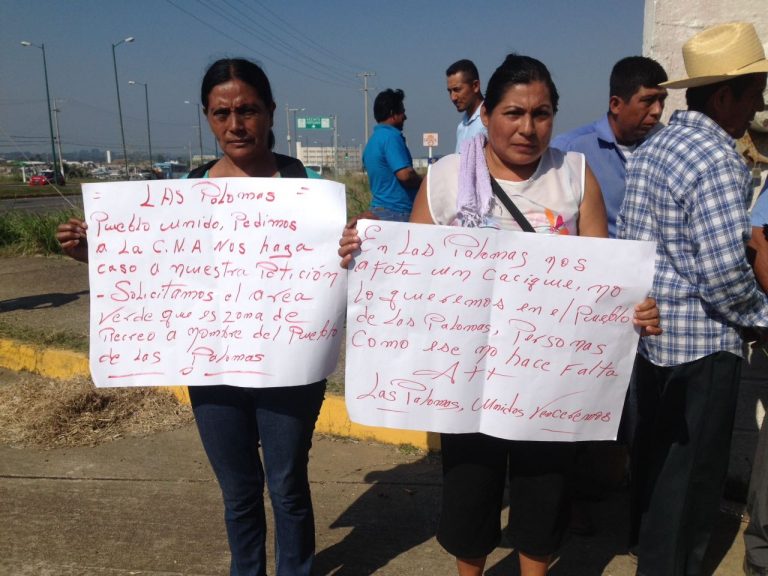 = LAS Palomas =
Pueblo unido, Pedimos
a La C.N.A Nos haga
caso a nuestra Petición
- Solicitamos el area
verde que es zona de
Recreo a Nombre del Pueblo
de Las Palomas
En Las Palomas nos
afeta un Cacique, no
lo queremos en el Pueblo
de Las Palomas, Personas
Como ese no hace falta
Att
Las Palomas, Unidos Venceremos